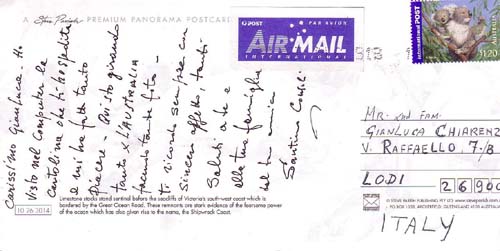 Steve Parish PREMIUM PANORAMA POSTCARD
POST PAR AVION
AIR MAIL
INTERNATIONAL
International POST
Australia
$1.20
Carissimo Gianluca. Ho
visto nel computer la
cartolina che ti ho spedito
e mi ha fatto tanto
piacere - Ora sto girando
tanto x L'AUSTRALIA
facendo tante foto -
Ti ricordo sempre con
sincero affetto, tanti
saluti a te e
alla tua famiglia
dal tuo amico
Santino
MR. and FAM.
GIANLUCA CHIARENZ
V. RAFFAELLO, 7/B
LODI 26900
ITALY
Limestone stacks stand sentinel before the seacliffs of Victoria's south-west coast which is
bordered by the Great Ocean Road. These remnants are stark evidence of the fearsome power
of the ocean which has also given rise to the name, the Shipwreck Coast.
10 26 2014
© STEVE PARISH PUBLISHING PTY LTD
www.steveparish.com.au
PO BOX 1058, ARCHERFIELD, QUEENSLAND 4108 AUSTRALIA